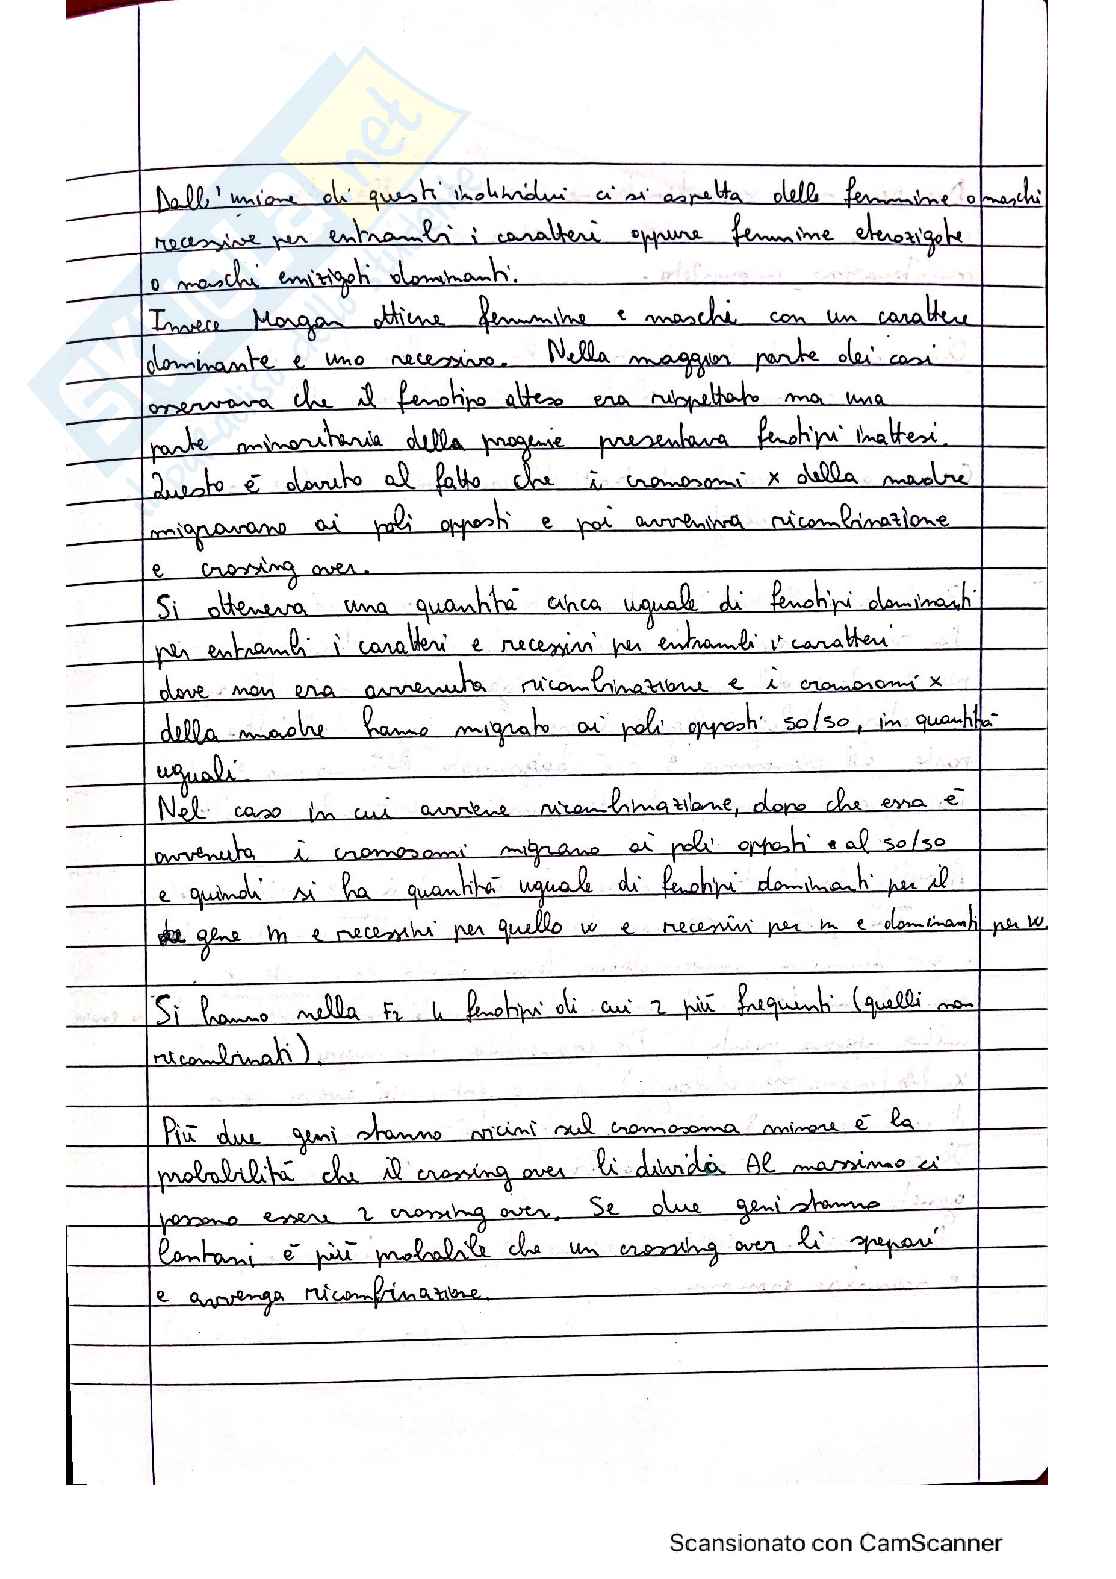 Dall'unione di questi individui ci si aspetta delle femmine o maschi
recessive per entrambi i caratteri oppure femmine eterozigote
o maschi emizigoti dominanti.
Invece Morgan ottiene femmine e maschi con un carattere
dominante e uno recessivo. Nella maggior parte dei casi
osservava che il fenotipo atteso era rispettato ma una
parte minoritaria della progenie presentava fenotipi inattesi.
Questo è dovuto al fatto che i cromosomi x della madre
migravano ai poli opposti e poi avveniva ricombinazione
e crossing over.
Si otteneva una quantità circa uguale di fenotipi dominanti
per entrambi i caratteri e recessivi per entrambi i caratteri
dove non era avvenuta ricombinazione e i cromosomi x
della madre hanno migrato ai poli opposti 50/50, in quantità
uguali.
Nel caso in cui avviene ricombinazione, dopo che essa è
avvenuta i cromosomi migrano ai poli opposti al 50/50
e quindi si ha quantità uguale di fenotipi dominanti per il
gene m e recessivi per quello w e recessivi per m e dominanti per w.
Si hanno nella F2 4 fenotipi di cui 2 più frequenti (quelli non
ricombinati).
Più due geni stanno vicini sul cromosoma minore è la
probabilità che il crossing over li divida Al massimo ci
possono essere 2 crossing over. Se due geni stanno
lontani è più probabile che un crossing over li spepari
e avvenga ricombinazione.
SKUOLA.net
Scansionato con CamScanner